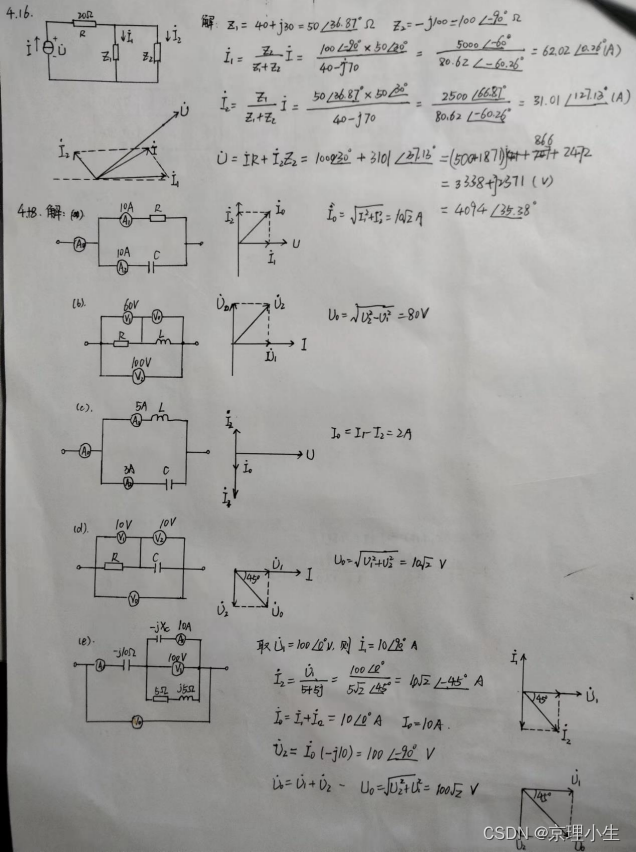 4.16.
20Ω
R
İ
U̇
İ₁
İ₂
Z₁
Z₂
解: Z₁ = 40+j30 = 50∠36.87° Ω Z₂ = -j100 = 100∠-90° Ω
İ₁ = Z₂/(Z₁+Z₂) İ = 100∠-90° × 50∠30° / 40-j70 = 5000∠-60° / 80.62∠-60.26° = 62.02∠0.26° (A)
İ₂ = Z₁/(Z₁+Z₂) İ = 50∠36.87° × 50∠30° / 40-j70 = 2500∠66.87° / 80.62∠-60.26° = 31.01∠127.13° (A)
U̇ = İR + İ₂Z₂ = 1000∠30° + 3101∠37.13° =
866
= 3338+j2371 (V)
= 4094∠35.38°
U̇
İ₂
İ
İ₁
4.18. 解:
10A
A₁
R
A₀
10A
A₂
C
İ₂
İ₀
İ₁
U
İ₀ = √(I₁²+I₂²) = 10√2 A
(b).
60V
V₁
V₀
R
L
100V
V₂
U̇₀
U̇₂
U̇₁
I
U₀ = √(U₂²-U₁²) = 80V
(c).
5A
L
A₁
A₀
3A
A₂
C
İ₂
İ₀
U
İ₁
I₀ = I₁-I₂ = 2A
(d).
10V
10V
V₁
V₂
R
C
V₀
U̇₁
I
45°
U̇₂
U̇₀
U₀ = √(U₁²+U₂²) = 10√2 V
(e).
-jXc
10A
-j10Ω
100V
V₁
5Ω
j5Ω
取 U̇₁ = 100∠0° V, 则 İ₁ = 10∠90° A
İ₂ = U̇₁/(5+5j) = 100∠0° / 5√2∠45° = 10√2∠-45° A
İ₀ = İ₁+İ₂ = 10∠0° A I₀ = 10A.
U̇₂ = İ₀(-j10) = 100∠-90° V
U̇₀ = U̇₁+U̇₂ - U₀ = √(U₂²+U₁²) = 100√2 V
İ₁
45°
U̇₁
İ₂
U̇₁
45°
U̇₂
U̇₀
CSDN @京理小生